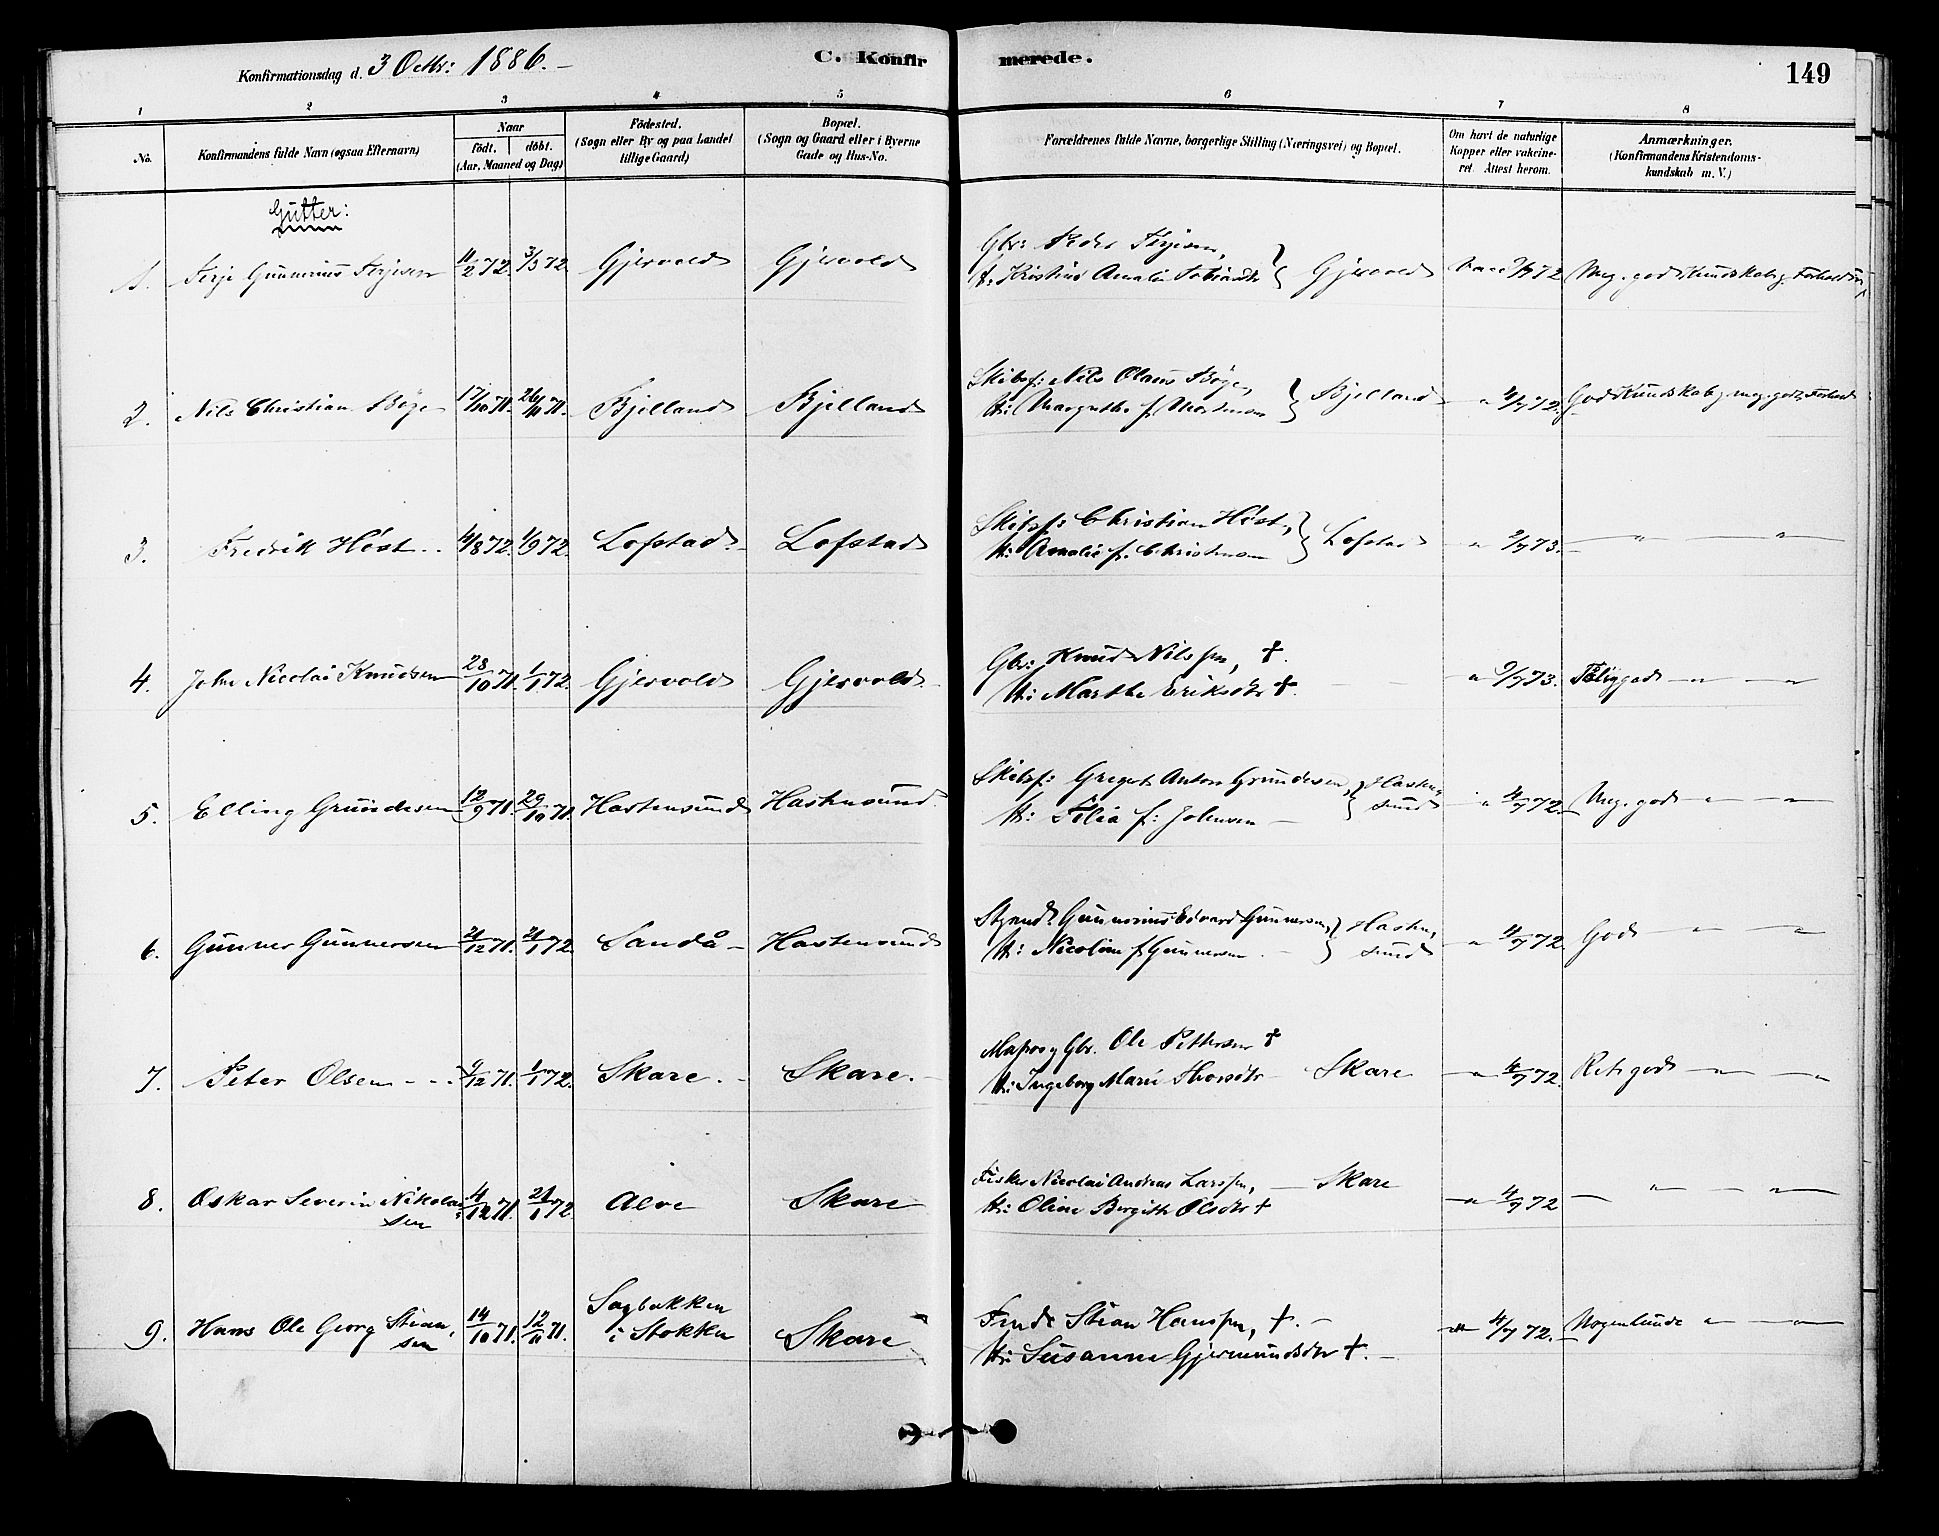 Konfirmationsdag d. 3 Octbr: 1886.
C. Konfirmerede.
149
1 2 3 4 5 6 7 8
No.
Konfirmandens fulde Navn (ogsaa Efternavn)
Naar
födt. döbt.
(Aar, Maaned og Dag)
Födested.
(Sogn eller By og paa Landet
tillige Gaard)
Bopæl.
(Sogn og Gaard eller i Byerne
Gade og Hus-No.
Forældrenes fulde Navne, borgerlige Stilling (Næringsvei) og Bopæl.
Om havt de naturlige
Kopper eller vakcine-
ret. Attest herom.
Anmærkninger.
(Konfirmandens Kristendoms-
kundskab m. V.)
Gutter:
1. Terje Gunerius Terjesen 11/2 72. 3/3 72. Gjervold Gjervold
Gbr: Peder Terjesen,
H: Kristine Amalie Tobiasdtr } Gjervold Vacc 72 Meg. god Kundskab g. Forhold
2. Nils Christian Böge 17/10 71. 26/11 71. Bjelland Bjelland
Skibsf: Nils Olaus Böge,
H: Margrethe f. Mortensen } Bjelland " 4/7 72. God Kundskab g. meg. godt Forhold
3. Fredrik Höst 4/8 72. 1/9 72. Lofstad Lofstad
Skibsf: Christian Höst,
H: Amalie f. Christensen } Lofstad " 2/7 73. " "
4. John Nicolai Knudsen 28/10 71. 1/1 72. Gjervold Gjervold
Gbr: Knud Nilssen, †.
H: Marthe Eriksdtr †. " 9/7 73. Tèlig god " "
5. Elling Grundesen 12/9 71. 29/10 71. Hastensund Hastensund
Skibsf: Gregert Anton Grundesen,
H: Filia f: Johnsen } Hasten,
sund " 4/7 72. Meg. god " "
6. Gunner Gunnersen 21/12 71. 21/1 72. Sandå Hastensund
Styrmd. Gunnerius Edvard Gunnersen,
H: Nicoline f. Gunnersen } Hasten,
sund " 4/7 72. God " "
7. Peter Olsen 9/12 71. 1/1 72. Skare. Skare.
Ole Pettersen †
H: Ingeborg Marie Thorsdtr Skare " 4/7 72. Ret god " "
8. Oskar Severin Nikolai
sen 4/12 71. 21/1 72. Alve Skare
Fisker Nicolai Andreas Larssen, Skare
H: Oline Birgitte Olsdtr † " 4/7 72 " "
9. Hans Ole Georg Stian,
sen 14/10 71. 12/11 71. Sagbakken
i Stokken Skare
Inds. Stian Hanssen, †.
H: Susanne Gjermundsdtr †. " 4/7 72. Nogenlunde " "